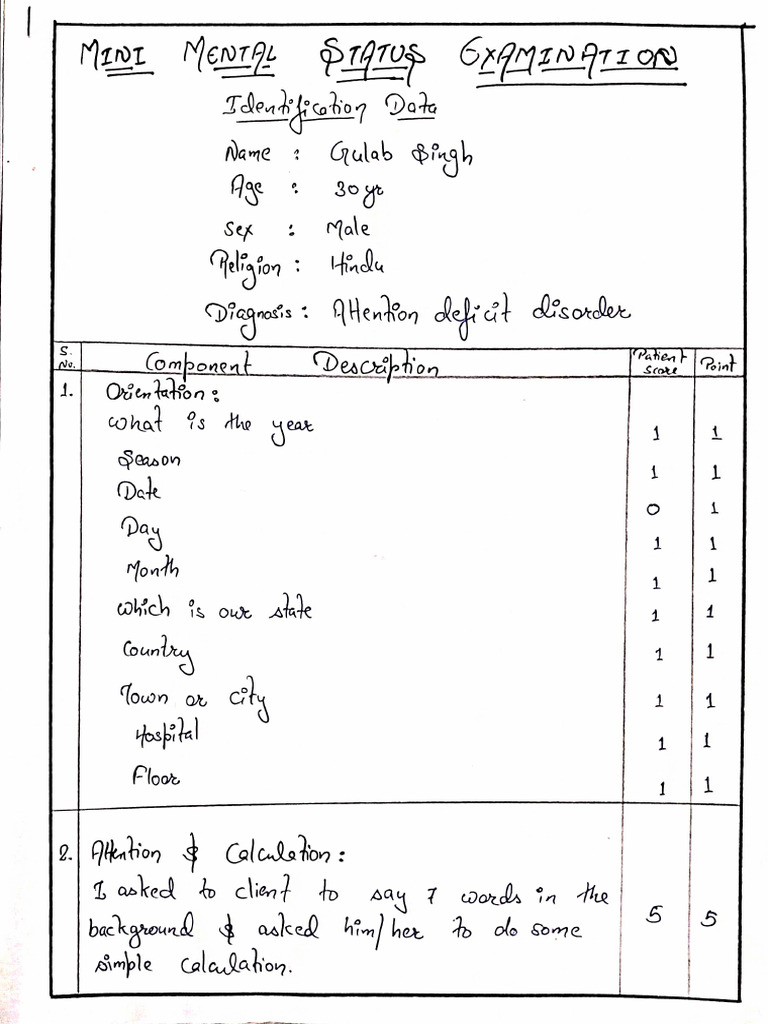 MINI MENTAL STATUS EXAMINATION
Identification Data
Name : Gulab Singh
Age : 30 yr
Sex : Male
Religion : Hindu
Diagnosis : Attention deficit disorder
S. No. Component Description Patient Score Point
1. Orientation :
What is the year 1 1
Season 1 1
Date 0 1
Day 1 1
Month 1 1
Which is our state 1 1
Country 1 1
Town or city 1 1
Hospital 1 1
Floor 1 1
2. Attention & Calculation :
I asked to client to say 7 words in the
background & asked him/her to do some 5 5
simple calculation.